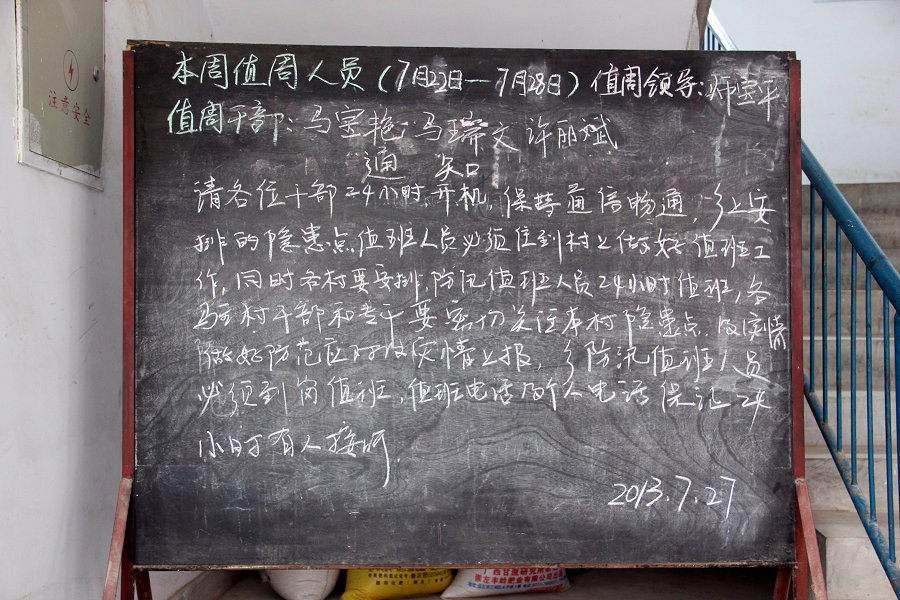 注意安全
本周值周人员(7月22日—7月28日) 值周领导:师宝平
值周干部:马宝艳 马瑞文 许丽斌
通 知
请各位干部24小时开机,保持通信畅通,乡上安
排的隐患点值班人员必须住到村上做好值班工
作,同时各村要安排防汛值班人员24小时值班,各
驻村干部和专干要密切关注本村隐患点及灾情
做好防范应对及灾情上报,乡防汛值班人员
必须到岗值班,值班电话及个人电话保证24
小时有人接听.
2013.7.27